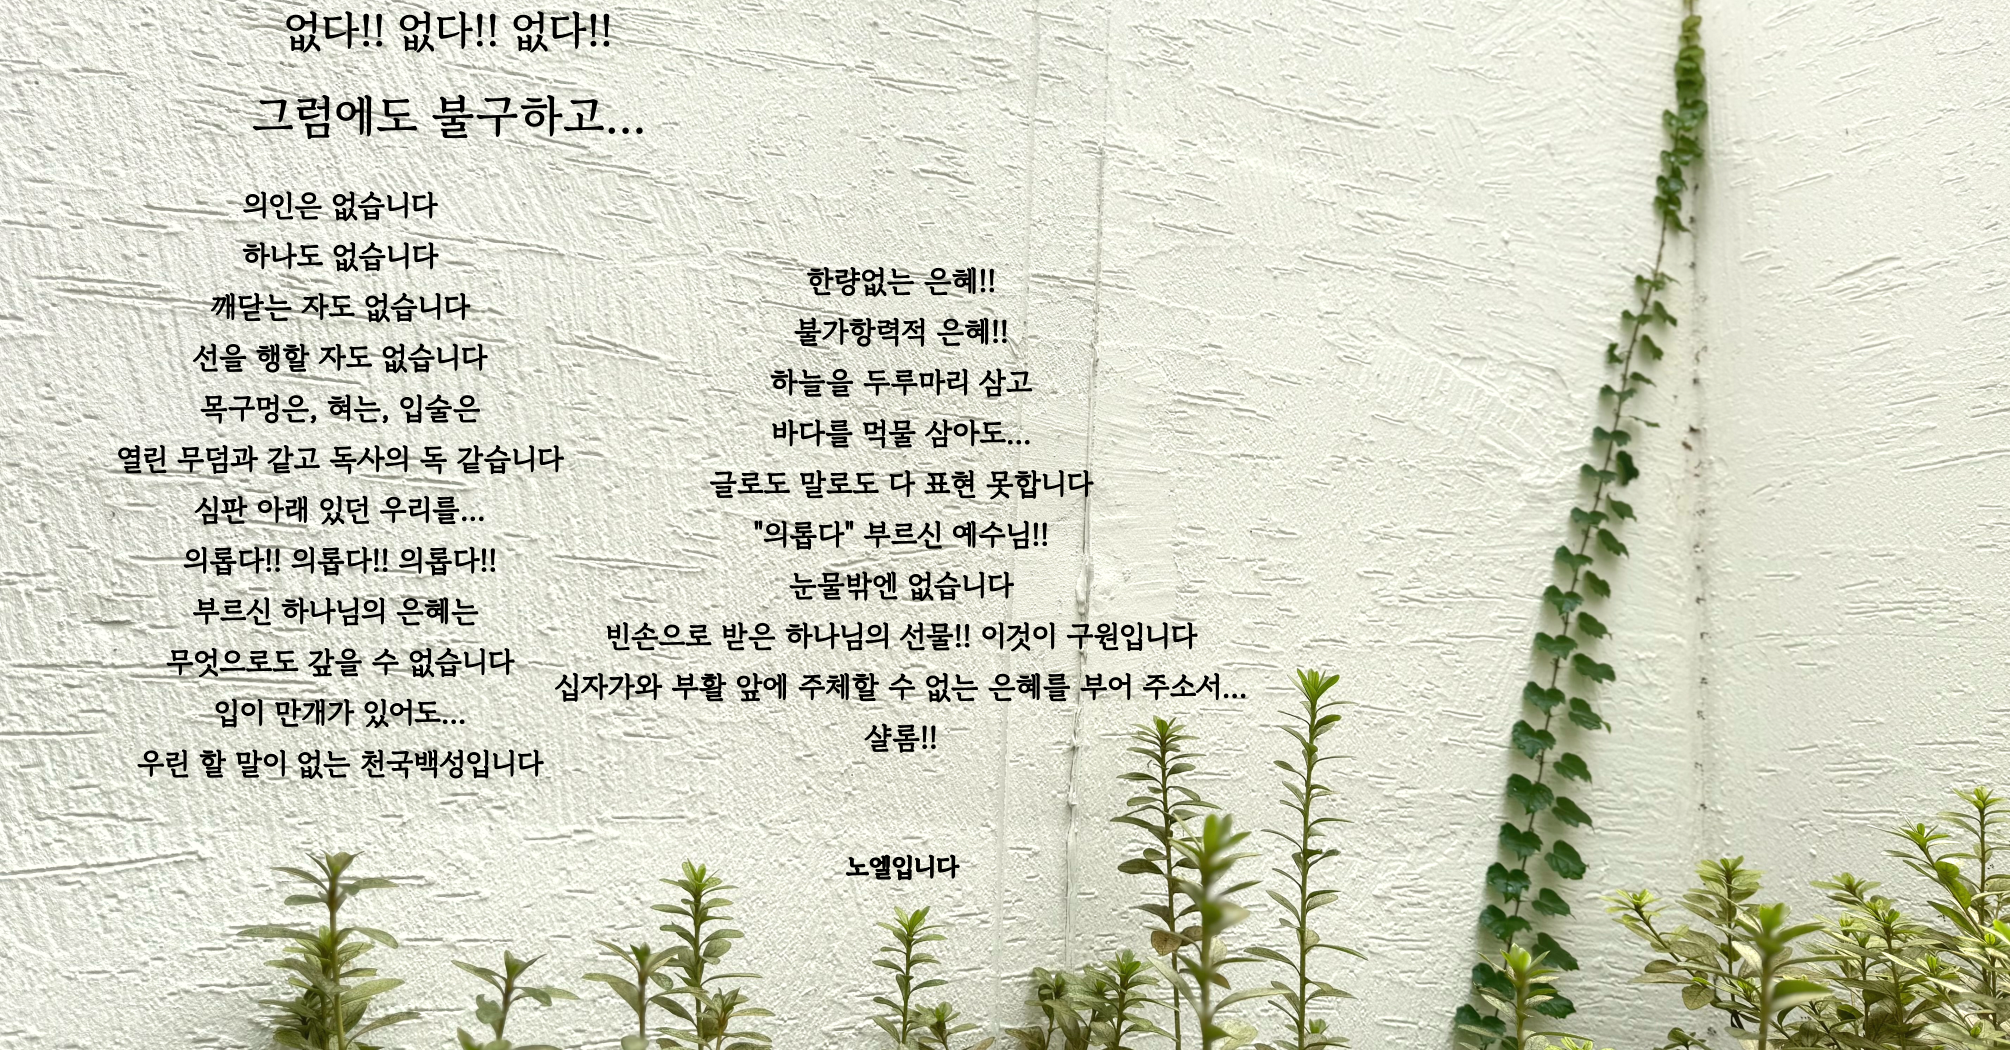 없다!! 없다!! 없다!!
그럼에도 불구하고...
의인은 없습니다
하나도 없습니다
깨닫는 자도 없습니다
선을 행할 자도 없습니다
목구멍은, 혀는, 입술은
열린 무덤과 같고 독사의 독 같습니다
심판 아래 있던 우리를...
의롭다!! 의롭다!! 의롭다!!
부르신 하나님의 은혜는
무엇으로도 갚을 수 없습니다
입이 만개가 있어도...
우린 할 말이 없는 천국백성입니다
한량없는 은혜!!
불가항력적 은혜!!
하늘을 두루마리 삼고
바다를 먹물 삼아도...
글로도 말로도 다 표현 못합니다
"의롭다" 부르신 예수님!!
눈물밖엔 없습니다
빈손으로 받은 하나님의 선물!! 이것이 구원입니다
십자가와 부활 앞에 주체할 수 없는 은혜를 부어 주소서...
샬롬!!
노엘입니다